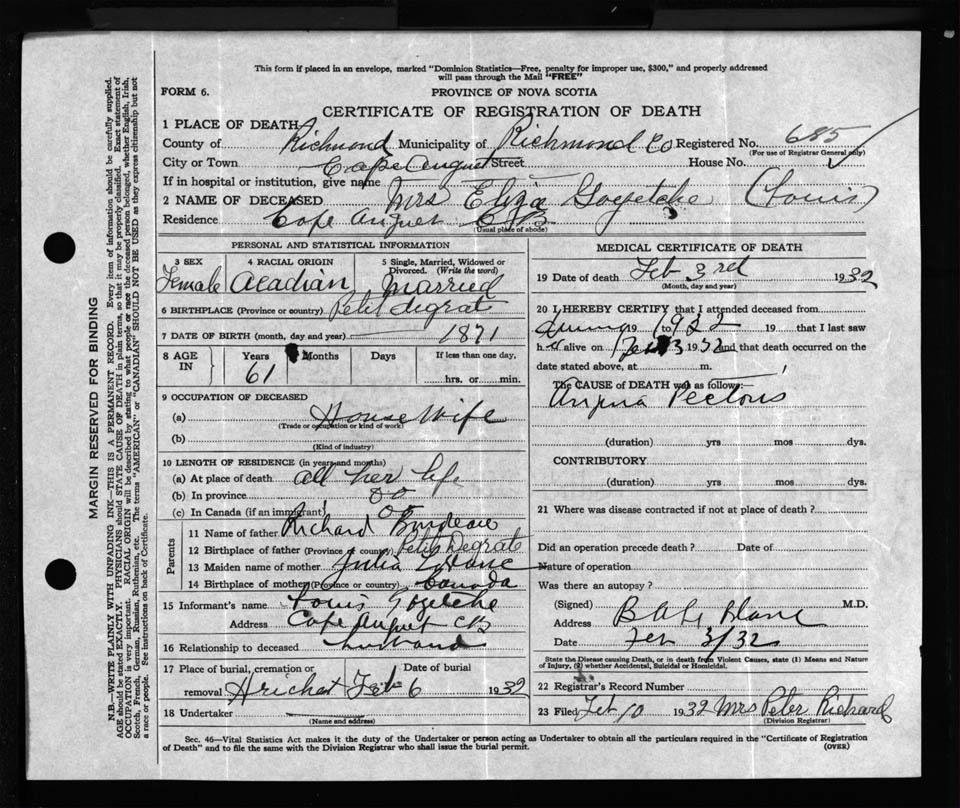 This form if placed in an envelope, marked "Dominion Statistics—Free, penalty for improper use, $300," and properly addressed
will pass through the Mail "FREE"
FORM 6. PROVINCE OF NOVA SCOTIA
CERTIFICATE OF REGISTRATION OF DEATH
1 PLACE OF DEATH
County of Richmond Municipality of Richmond Co Registered No. 685
(For use of Registrar General only)
City or Town Cape Auguet Street House No.
If in hospital or institution, give name
2 NAME OF DECEASED Mrs Eliza Gogetche (Louis)
Residence Cape Auguet C B
(Usual place of abode)
PERSONAL AND STATISTICAL INFORMATION
3 SEX 4 RACIAL ORIGIN 5 Single, Married, Widowed or Divorced. (Write the word)
Female Acadian Married
6 BIRTHPLACE (Province or country) Petit degrat
7 DATE OF BIRTH (month, day and year) 1871
8 AGE IN Years Months Days If less than one day,
61 hrs. or min.
9 OCCUPATION OF DECEASED
(a) House Wife
(Trade or occupation or kind of work)
(b)
(Kind of industry)
10 LENGTH OF RESIDENCE (in years and months)
(a) At place of death all her life
(b) In province
(c) In Canada (if an immigrant)
Parents
11 Name of father Richard
12 Birthplace of father (Province or country) Petit Degrat
13 Maiden name of mother Julia
14 Birthplace of mother (Province or country) Canada
15 Informant's name Louis Gogetche
Address Cape Auguet CB
16 Relationship to deceased husband
17 Place of burial, cremation or Date of burial
removal Arichat Feb 6 1932
18 Undertaker
(Name and address)
MEDICAL CERTIFICATE OF DEATH
19 Date of death Feb 3rd 1932
(Month, day and year)
20 I HEREBY CERTIFY that I attended deceased from
19 to 19 that I last saw
h alive on 1932 and that death occurred on the
date stated above, at m.
The CAUSE of DEATH was as follows:—
Angina Pectoris
(duration) yrs mos dys.
CONTRIBUTORY
(duration) yrs mos dys.
21 Where was disease contracted if not at place of death?
Did an operation precede death? Date of
Nature of operation
Was there an autopsy?
(Signed) M.D.
Address
Date Feb 3/32
State the Disease causing Death, or in death from Violent Causes, state (1) Means and Nature
of Injury, (2) whether Accidental, Suicidal or Homicidal.
22 Registrar's Record Number
23 Filed Feb 10 1932 Mrs Peter Richard
(Division Registrar)
Sec. 46—Vital Statistics Act makes it the duty of the Undertaker or person acting as Undertaker to obtain all the particulars required in the "Certificate of Registration
of Death" and to file the same with the Division Registrar who shall issue the burial permit. (OVER)
MARGIN RESERVED FOR BINDING
N.B.—WRITE PLAINLY WITH UNFADING INK—THIS IS A PERMANENT RECORD. Every item of information should be carefully supplied.
AGE should be stated EXACTLY. PHYSICIANS should STATE CAUSE OF DEATH in plain terms, so that it may be properly classified. Exact statement of
OCCUPATION is very important. RACIAL ORIGIN will be described by stating to what people or race the deceased person belonged, whether English, Irish,
Scotch, French, German, Russian, Ruthenian, etc. The terms "AMERICAN" or "CANADIAN" SHOULD NOT BE USED as they express citizenship but not
a race or people. See instructions on back of Certificate.